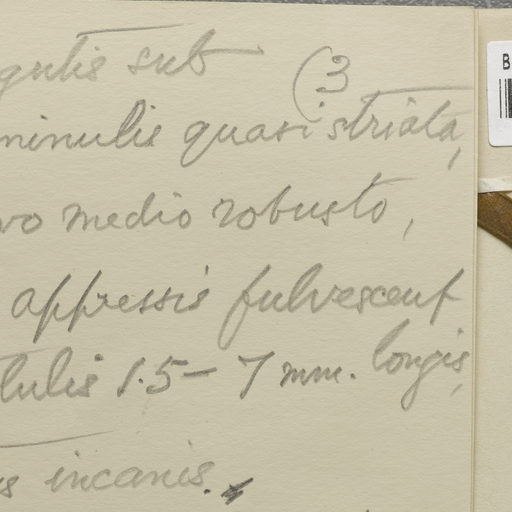 gulis sub (3
minulis quasi striata,
vo medio robusto,
appressis fulvescent
tulis 1.5 – 7 mm. longis,
incanis.
B